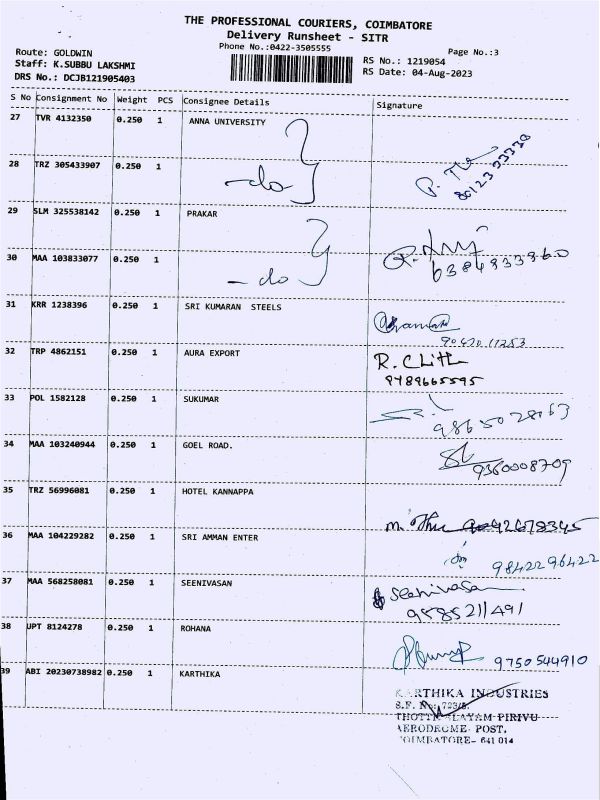 THE PROFESSIONAL COURIERS, COIMBATORE
Delivery Runsheet - SITR
Phone No.:0422-3505555
Page No.:3
Route: GOLDWIN
Staff: K.SUBBU LAKSHMI
DRS No.: DCJB121905403
RS No.: 1219054
RS Date: 04-Aug-2023
S No Consignment No Weight PCS Consignee Details Signature
27 TVR 4132350 0.250 1 ANNA UNIVERSITY
28 TRZ 305433907 0.250 1 -do-
29 SLM 325538142 0.250 1 PRAKAR
30 MAA 103833077 0.250 1 -do
6384933960
31 KRR 1238396 0.250 1 SRI KUMARAN STEELS
32 TRP 4862151 0.250 1 AURA EXPORT
9489665595
33 POL 1582128 0.250 1 SUKUMAR
34 MAA 103240944 0.250 1 GOEL ROAD.
9360008709
35 TRZ 56996081 0.250 1 HOTEL KANNAPPA
36 MAA 104229282 0.250 1 SRI AMMAN ENTER
9842296422
37 MAA 568258081 0.250 1 SEENIVASAN Seenivasan
9585211491
38 UPT 8124278 0.250 1 ROHANA
9750544910
39 ABI 20230738982 0.250 1 KARTHIKA
KARTHIKA INDUSTRIES
S.F. No: 723/3.
THOTTIPALAYAM PIRIVU
AERODROME POST.
COIMBATORE- 641 014